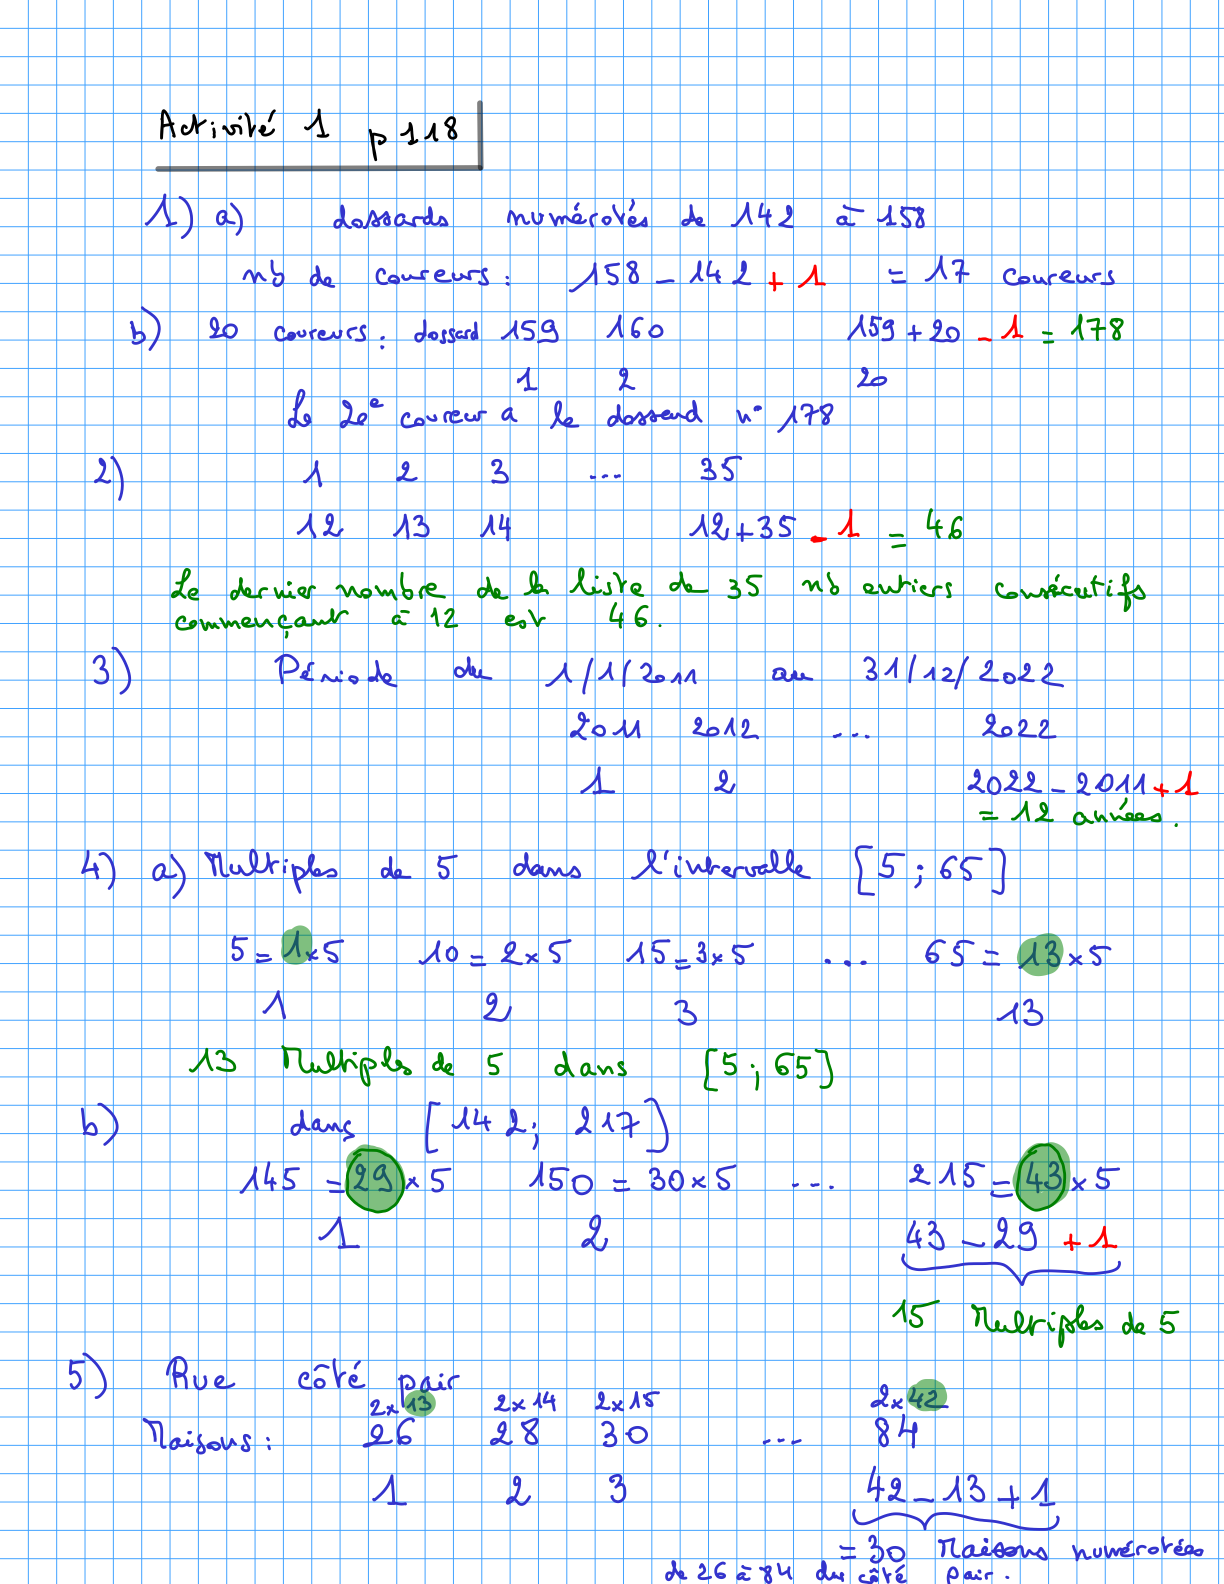 Activité 1 p 118
1) a) dossards numérotés de 142 à 158
nb de coureurs : 158 - 142 + 1 = 17 coureurs
b) 20 coureurs : dossard 159 160 159 + 20 - 1 = 178
1 2 20
Le 20e coureur a le dossard n° 178
2) 1 2 3 ... 35
12 13 14 12 + 35 - 1 = 46
Le dernier nombre de la liste de 35 nb entiers consécutifs
commençant à 12 est 46.
3) Période du 1/1/2011 au 31/12/2022
2011 2012 ... 2022
1 2 2022 - 2011 + 1
= 12 années.
4) a) Multiples de 5 dans l'intervalle [5 ; 65]
5 = 1 × 5 10 = 2 × 5 15 = 3 × 5 ... 65 = 13 × 5
1 2 3 13
13 Multiples de 5 dans [5 ; 65]
b) dans [142 ; 217]
145 = 29 × 5 150 = 30 × 5 ... 215 = 43 × 5
1 2 43 - 29 + 1
15 Multiples de 5
5) Rue côté pair
2 × 13 2 × 14 2 × 15 2 × 42
Maisons : 26 28 30 ... 84
1 2 3 42 - 13 + 1
= 30 Maisons numérotées
de 26 à 84 du côté pair.